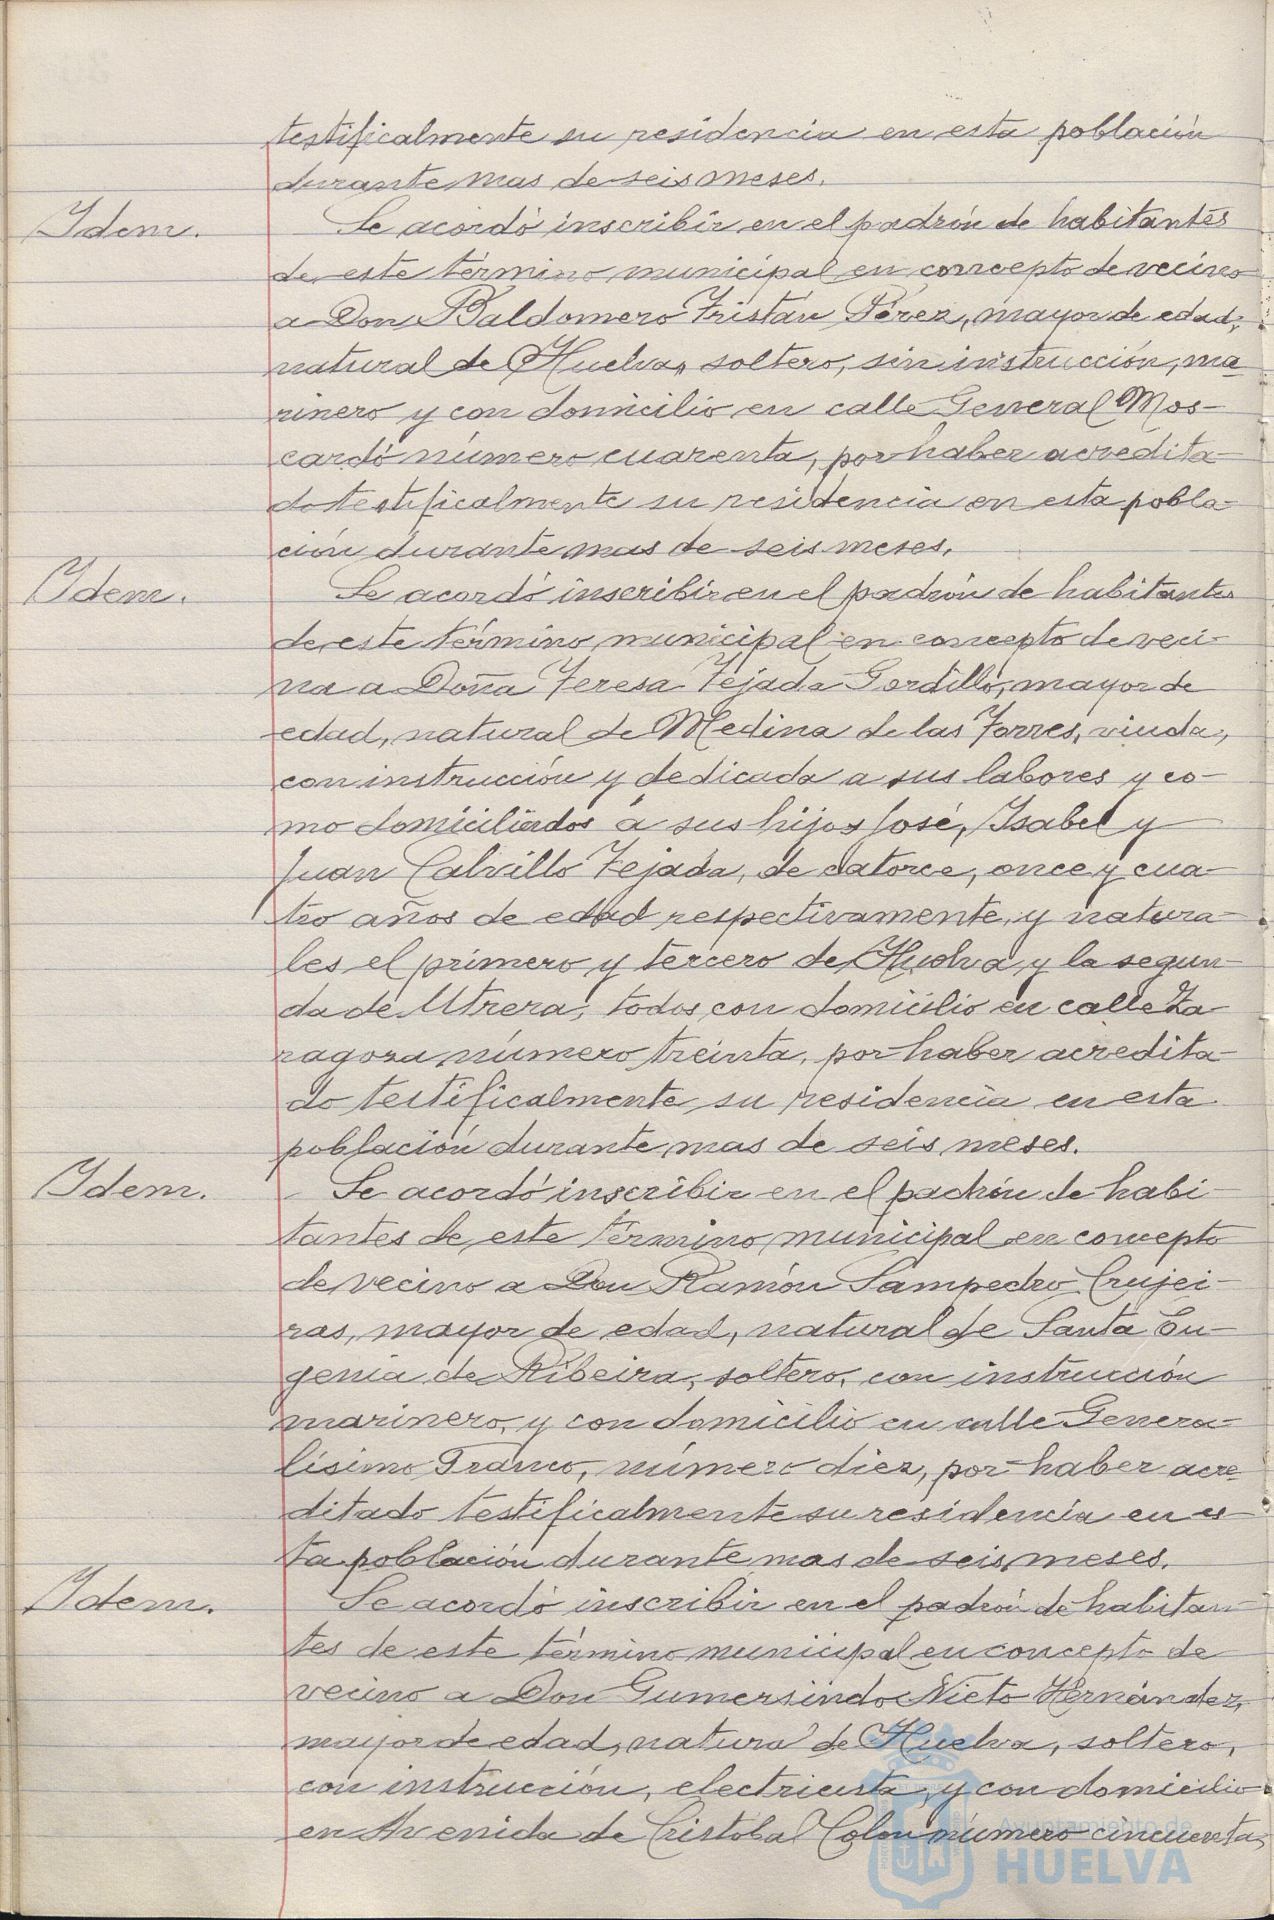 testificalmente su residencia en esta población
durante mas de seis meses.
Idem.
Se acordó inscribir en el padrón de habitantes
de este término municipal en concepto de vecino
a Don Baldomero Tristán Pérez, mayor de edad,
natural de Huelva, soltero, sin instrucción, ma-
rinero y con domicilio en calle General Mos-
cardó número cuarenta, por haber acredita-
do testificalmente su residencia en esta pobla-
ción durante mas de seis meses.
Idem.
Se acordó inscribir en el padrón de habitantes
de este término municipal en concepto de veci-
na a Doña Teresa Tejada Gordillo, mayor de
edad, natural de Medina de las Torres, viuda,
con instrucción y dedicada a sus labores y co-
mo domiciliados a sus hijos José, Isabel y
Juan Calvillo Tejada, de catorce, once y cua-
tro años de edad respectivamente, y natura-
les el primero y tercero de Huelva y la segun-
da de Utrera, todos con domicilio en calle Za-
ragoza, número treinta, por haber acredita-
do testificalmente su residencia en esta
población durante mas de seis meses.
Idem.
Se acordó inscribir en el padrón de habi-
tantes de este término municipal en concepto
de vecino a Don Ramón Sampedro Crujei-
ras, mayor de edad, natural de Santa Eu-
genia de Ribeira, soltero, con instrucción
marinero, y con domicilio en calle Genera-
lísimo Franco, número diez, por haber acre-
ditado testificalmente su residencia en es-
ta población durante mas de seis meses.
Idem.
Se acordó inscribir en el padrón de habitan-
tes de este término municipal en concepto de
vecino a Don Gumersindo Nieto Hernández,
mayor de edad, natural de Huelva, soltero,
con instrucción, electricista, y con domicilio
en Avenida de Cristobal Colon número cincuenta,
Ayuntamiento de
HUELVA